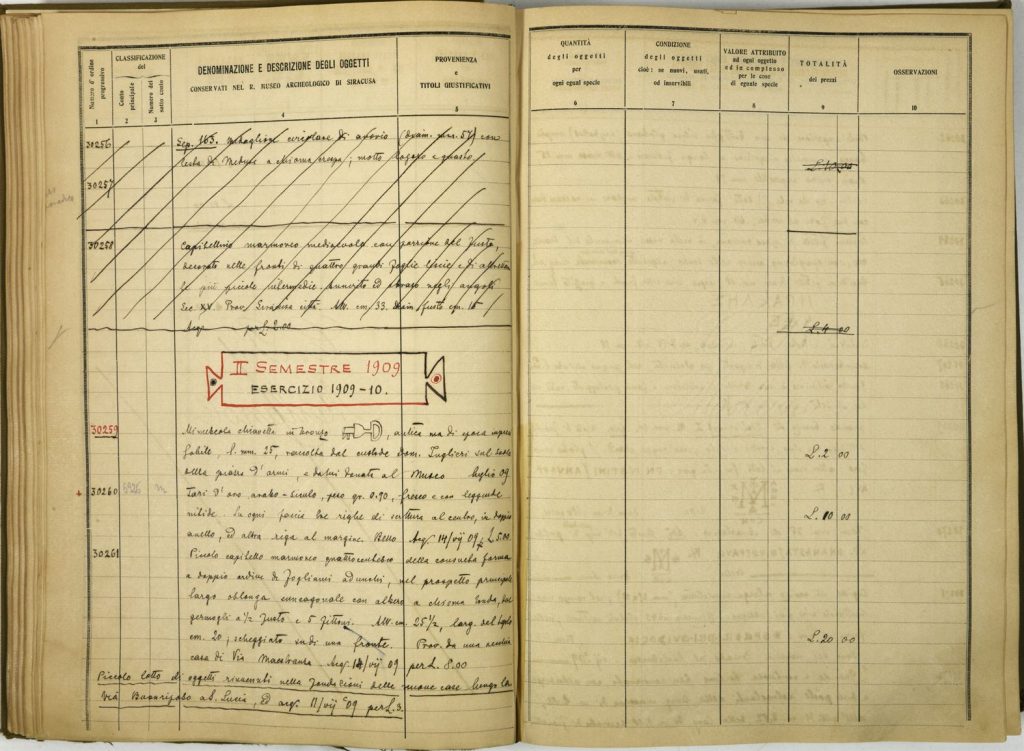 Numero d'ordine progressivo
CLASSIFICAZIONE
del
Conto principale
Numero del sotto conto
DENOMINAZIONE E DESCRIZIONE DEGLI OGGETTI
CONSERVATI NEL R. MUSEO ARCHEOLOGICO DI SIRACUSA
PROVENIENZA
e
TITOLI GIUSTIFICATIVI
1 2 3 4 5
30256 Sep. 163. Medaglione circolare di avorio (diam. mm. 57) con
testa di Medusa a chioma; molto logoro e guasto
30257
30258 Capitellino marmoreo medievale con porzione del fusto,
decorato nelle fronti di quattro grandi foglie lisce e di altrettan
te più piccole intermedie. Annerito ed abraso negli angoli
Sec. XV. Prov. Siracusa città. Alt. cm. 33. Diam. fusto cm. 15
Acq. per L. 2.00
II SEMESTRE 1909
ESERCIZIO 1909-10.
30259 Minuscola chiavetta in bronzo, antica ma di epoca impreci
sabile, l. mm. 25, raccolta dal custode Dom. Inglieri sul suolo
della piazza d'armi, e da lui donata al Museo luglio 09
30260 5926 m Tarì d'oro arabo-siculo, peso gr. 0.90, fresco e con leggende
nitide. In ogni faccia tre righe di scrittura al centro, in doppio
anello, ed altra riga al margine. Bello Acq. 14/VII 09 p. L. 5.00
30261 Piccolo capitello marmoreo quattrocentesco della consueta forma
a doppio ordine di fogliami adunchi, nel prospetto principale
targa oblunga ennagonale con albero a chioma tonda, due
germogli a ½ fusto e 5 fittoni. Alt. cm. 25½, larg.
cm. 20; scheggiato in una fronte. Prov. da una vecchia
casa di Via Maestranza. Acq. 14/VII 09 per L. 8.00
Piccolo lotto di oggetti rinvenuti nella fondazioni delle nuove case lungo la
via a S. Lucia, ed acq. 11/VII 09 per L. 3.
QUANTITÀ
degli oggetti
per
ogni egual specie
CONDIZIONE
degli oggetti
cioè: se nuovi, usati,
od inservibili
VALORE ATTRIBUITO
ad ogni oggetto
ed in complesso
per le cose
di eguale specie
TOTALITÀ
dei prezzi
OSSERVAZIONI
6 7 8 9 10
L. 10 00
L. 4 00
L. 2 00
L. 10 00
L. 20 00